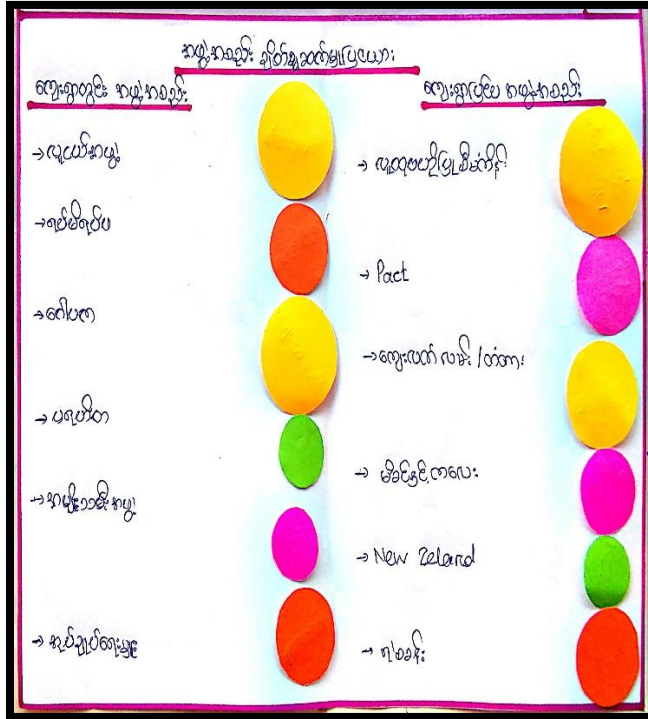 အဖွဲ့အစည်း ချိတ်ဆက်မှုပြဇယား
ကျေးရွာတွင်း အဖွဲ့အစည်း
→လူငယ်အဖွဲ့
→ရပ်မိရပ်ဖ
→ဂေါပက
→ပရဟိတ
→အမျိုးသမီးအဖွဲ့
→အုပ်ချုပ်ရေးမှူး
ကျေးရွာပြင်ပ အဖွဲ့အစည်း
→လူထုဗဟိုပြုစီမံကိန်း
→Pact
→ကျေးလက် လမ်း/တံတား
→မိခင်နှင့်ကလေး
→New Zeland
→ရဲစခန်း